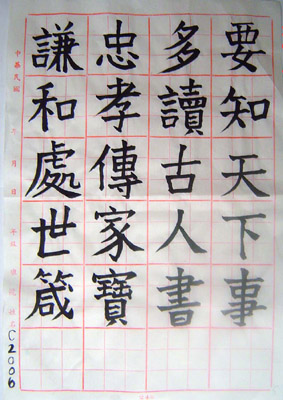 要知天下事
多讀古人書
忠孝傳家寶
謙和處世箴
中華民國 年 月 日
C2006